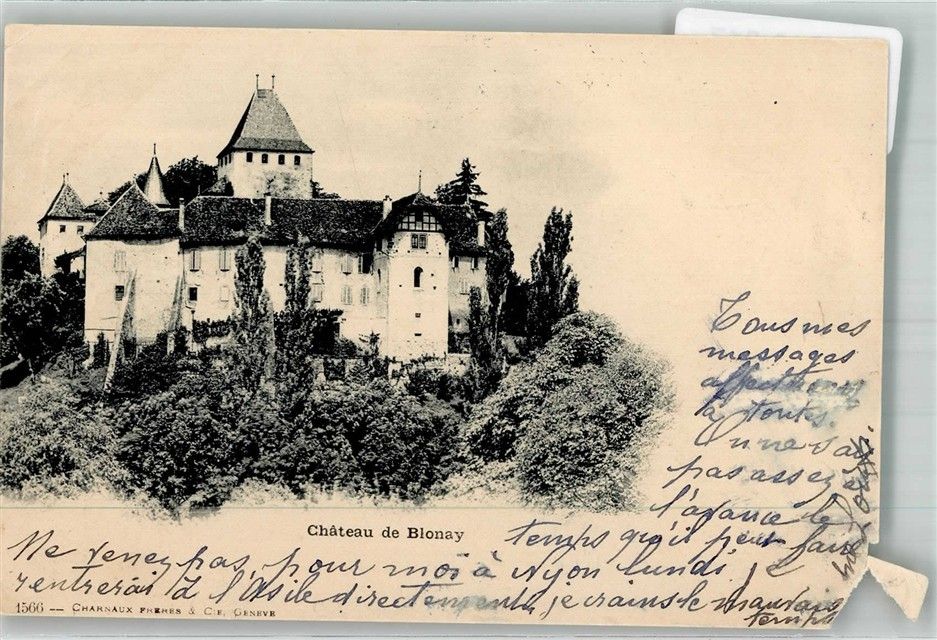 Château de Blonay
Tous mes
messages
affectueux
à toutes.
On ne sait
pas assez
à l'avance le
temps qu'il peut faire
Ne venez pas, pour moi à Nyon lundi, je
rentrerai à l'Asile directement, je crains le mauvais
temps
1566 — CHARNAUX FRÈRES & CIE, GENÈVE